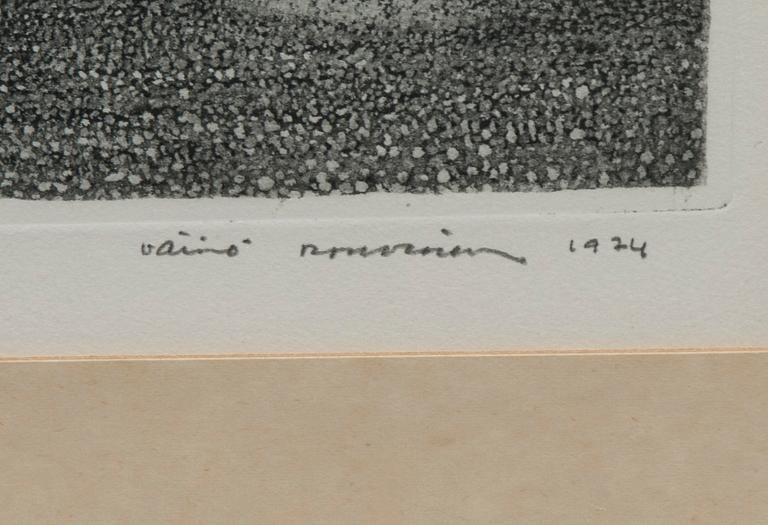 väinö rouvinen 1974